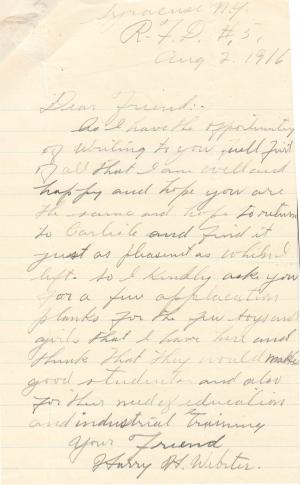 Syracuse N.Y.
R.F.D. #5,
Aug 2. 1916
Dear Friend:-
As I have the opportunity
of writing to you, will first
of all that I am well and
happy and hope you are
the same and hope to return
to Carlisle and find it
just as pleasent as when I
left. So I kindly ask you
for a few application
blanks for the few boys and
girls that I have here and
think that they would make
good students and also
for their need of education
and industrial training
Your Friend
Harry H. Webster.